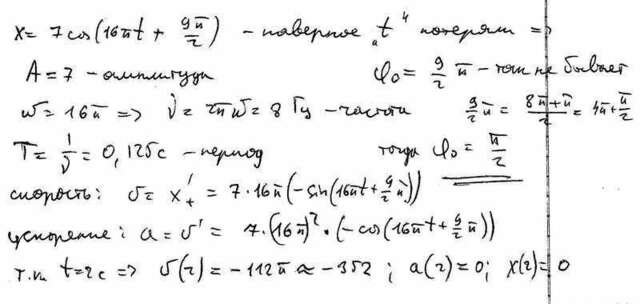 x = 7cos(16πt + 9π/2) - наверное "t" потеряли =>
A = 7 - амплитуда φ₀ = 9/2 π - так не бывает
ω = 16π => ν = 2πω = 8 Гц - частота 9/2 π = (8π+π)/2 = 4π + π/2
T = 1/ν = 0,125с - период тогда φ₀ = π/2
скорость: v = x't = 7·16π(-sin(16πt + 9/2 π))
ускорение: a = v' = 7·(16π)²·(-cos(16πt + 9/2 π))
т.к. t=2с => v(2) = -112π ≈ -352 ; a(2)=0; x(2)=0